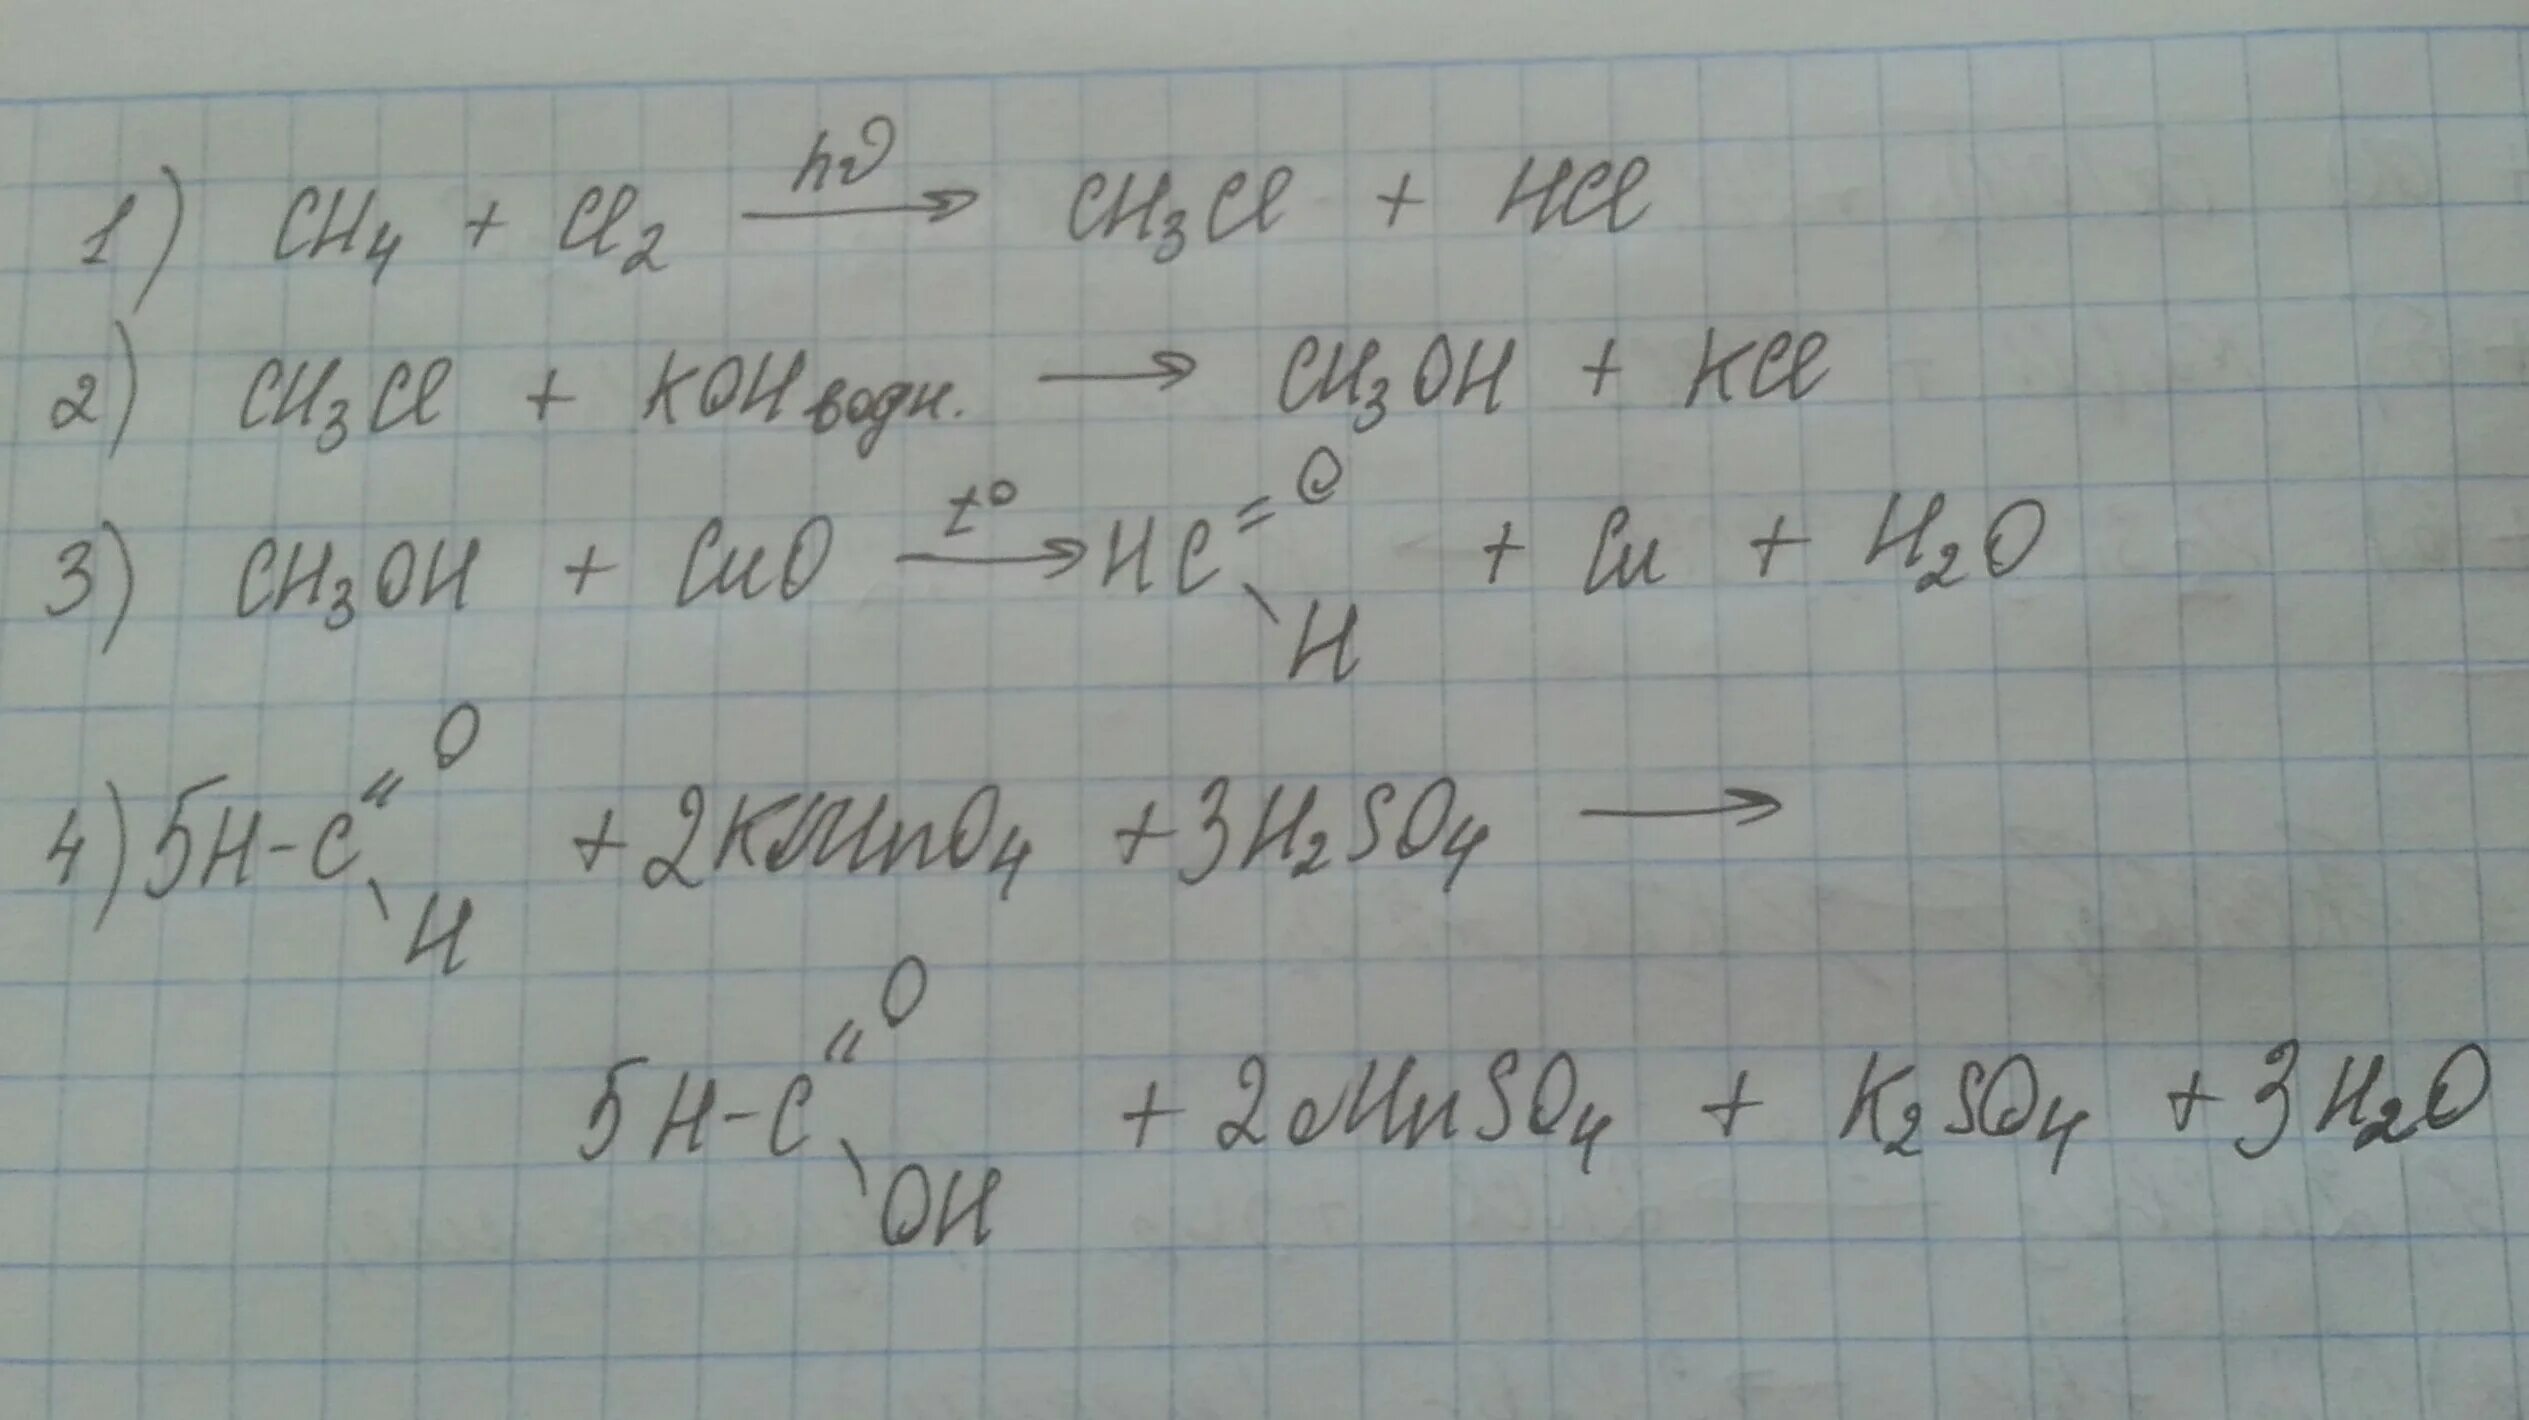 1) CH₄ + Cl₂ —hν→ CH₃Cl + HCl
2) CH₃Cl + KOH водн. → CH₃OH + KCl
3) CH₃OH + CuO —t°→ HC(=O)\H + Cu + H₂O
4) 5H-C(=O)\H + 2KMnO₄ + 3H₂SO₄ →
5H-C(=O)\OH + 2MnSO₄ + K₂SO₄ + 3H₂O